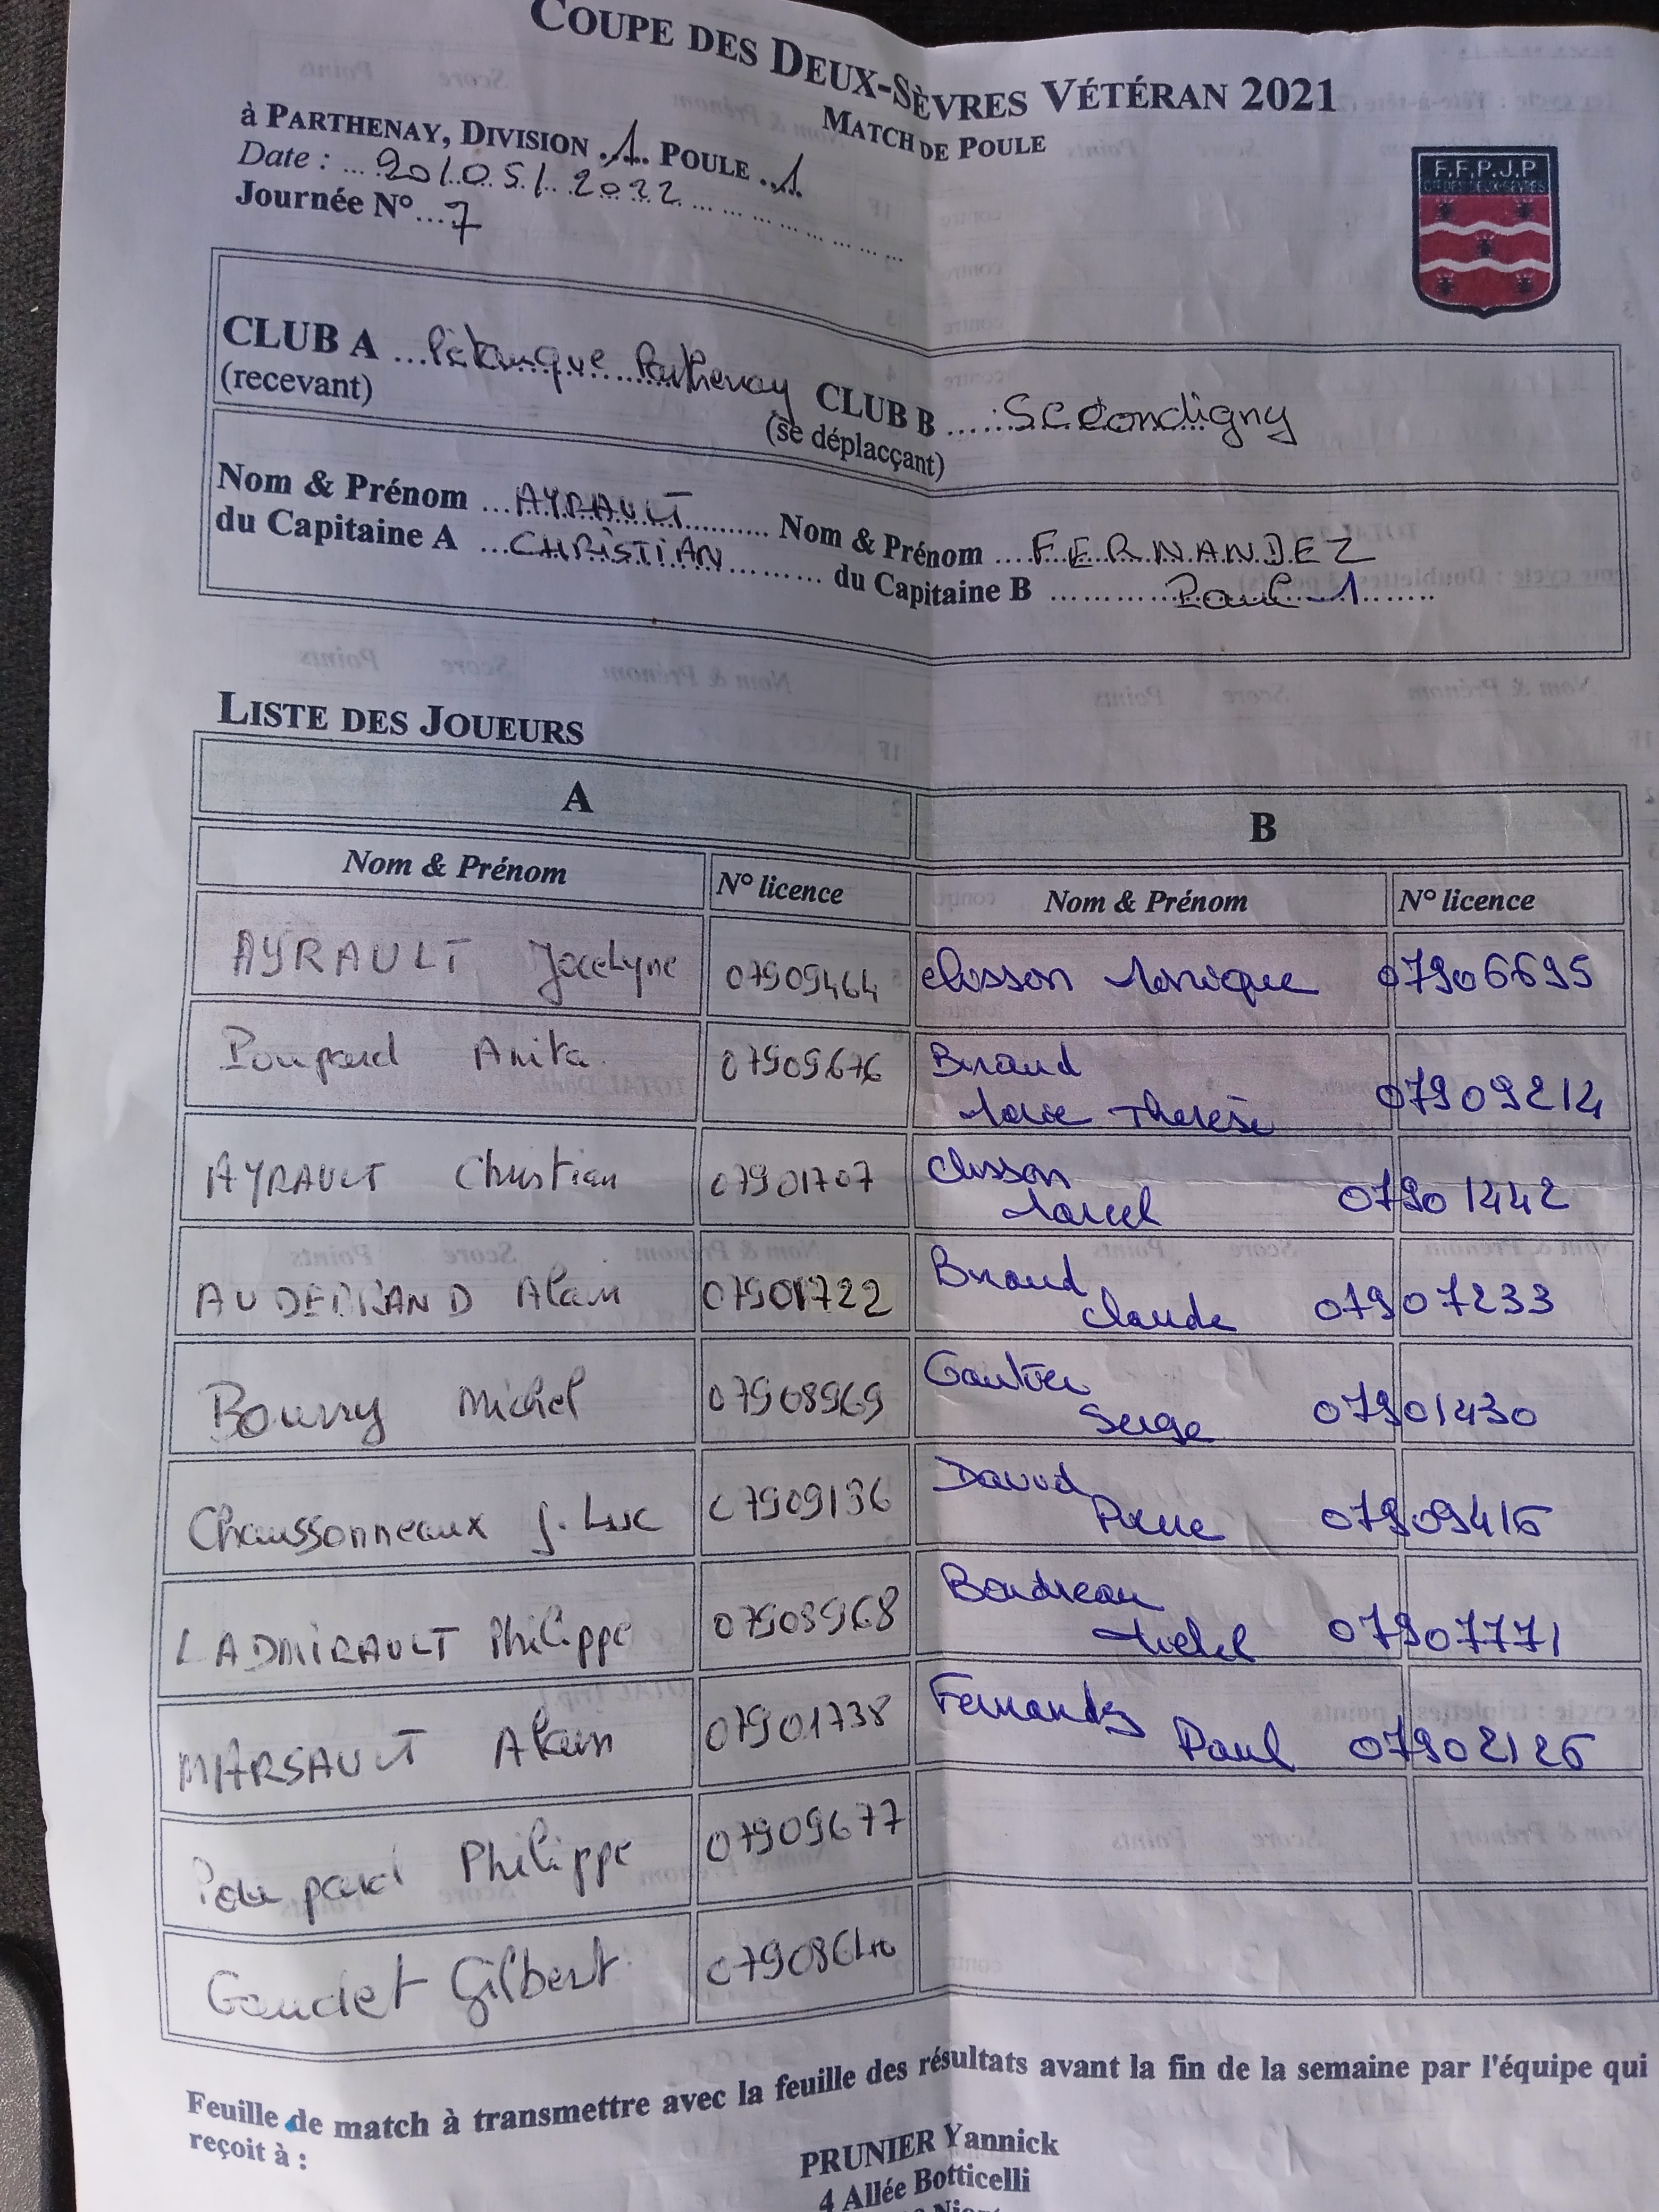 COUPE DES DEUX-SÈVRES VÉTÉRAN 2021
MATCH DE POULE
à PARTHENAY, DIVISION .1. POULE .1.
Date : ... 20/05/2022
Journée N° ... 7
F.F.P.J.P
CD DES DEUX-SEVRES
CLUB A ... Pétanque Parthenay CLUB B ... S.C. Condigny
(recevant) (se déplacçant)
Nom & Prénom ... AYRAULT ... Nom & Prénom ... FERNANDEZ
du Capitaine A ... CHRISTIAN ... du Capitaine B ... Paul 1
LISTE DES JOUEURS
A B
Nom & Prénom N° licence Nom & Prénom N° licence
AYRAULT Jocelyne 07909464 Clisson Monique 07906695
Poupard Anita 07909676 Beraud Marie Therese 07909214
AYRAULT Christian 07901707 Clisson Marcel 07901442
AUDEBRAND Alain 07901722 Beraud Claude 07907233
Bourry Michel 07908969 Gautier Serge 07901430
Chaussonneaux J. Luc 07909136 David Pierre 07909416
LADMIRAULT Philippe 07908968 Boudreau Michel 07907771
MARSAULT Alain 07901738 Fernandez Paul 07902126
Poupard Philippe 07909677
Gaudet Gilbert 07908640
Feuille de match à transmettre avec la feuille des résultats avant la fin de la semaine par l'équipe qui
reçoit à :
PRUNIER Yannick
4 Allée Botticelli